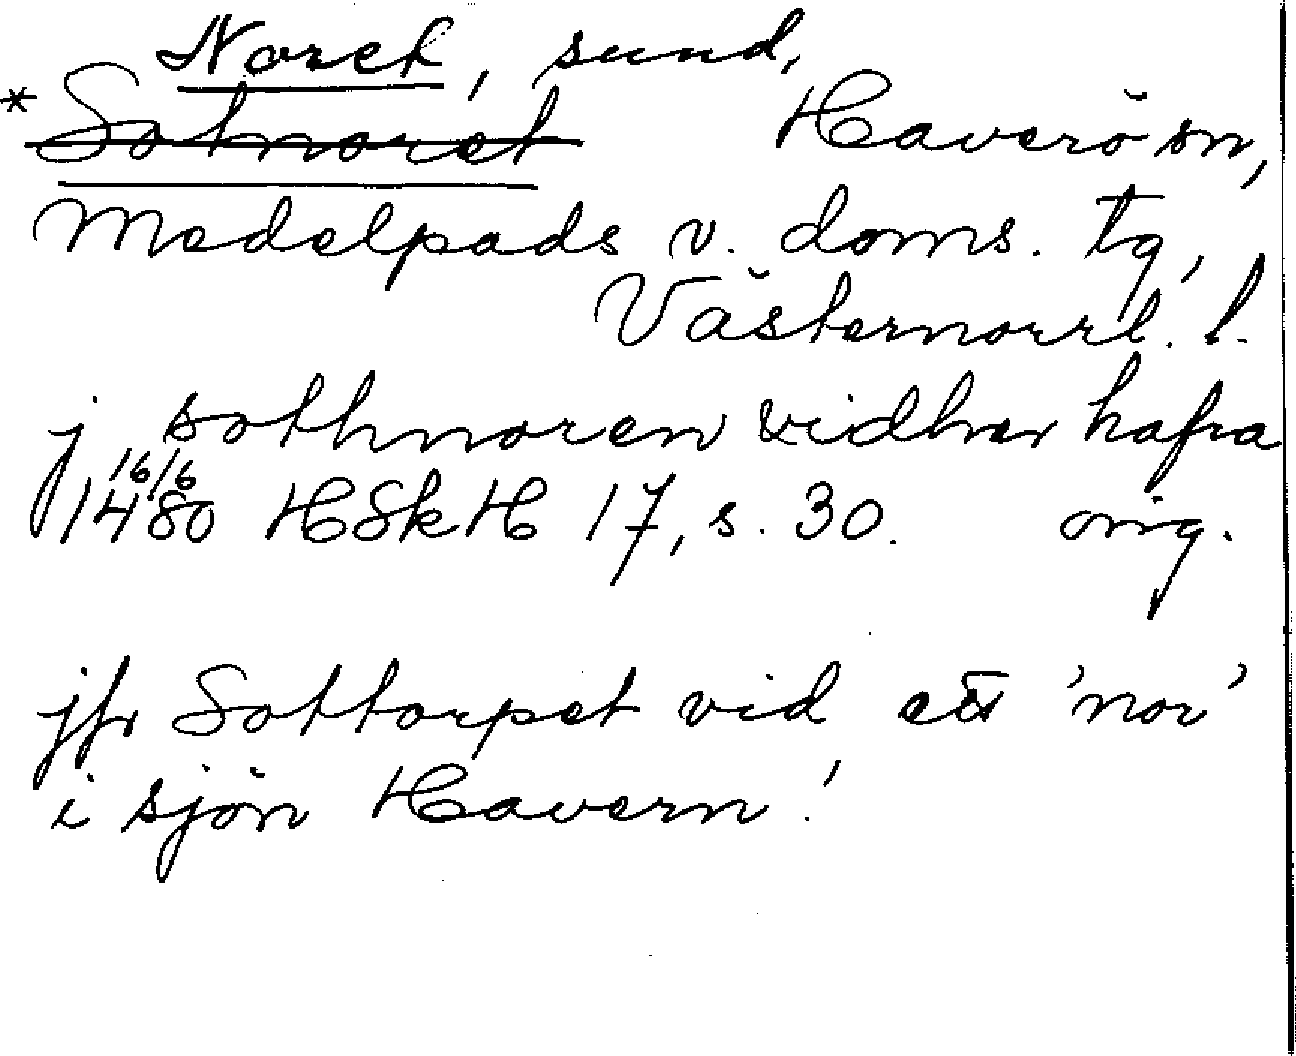 Noret, sund,
* Sotnoret Haverö sn,
Medelpads v. doms. tg,
Västernorrl. l.
j sothnoren vidher hafra
16/6
1480 HSkH 17, s. 30. orig.
jfr Sottorpet vid ett 'nor'
i sjön Havern!